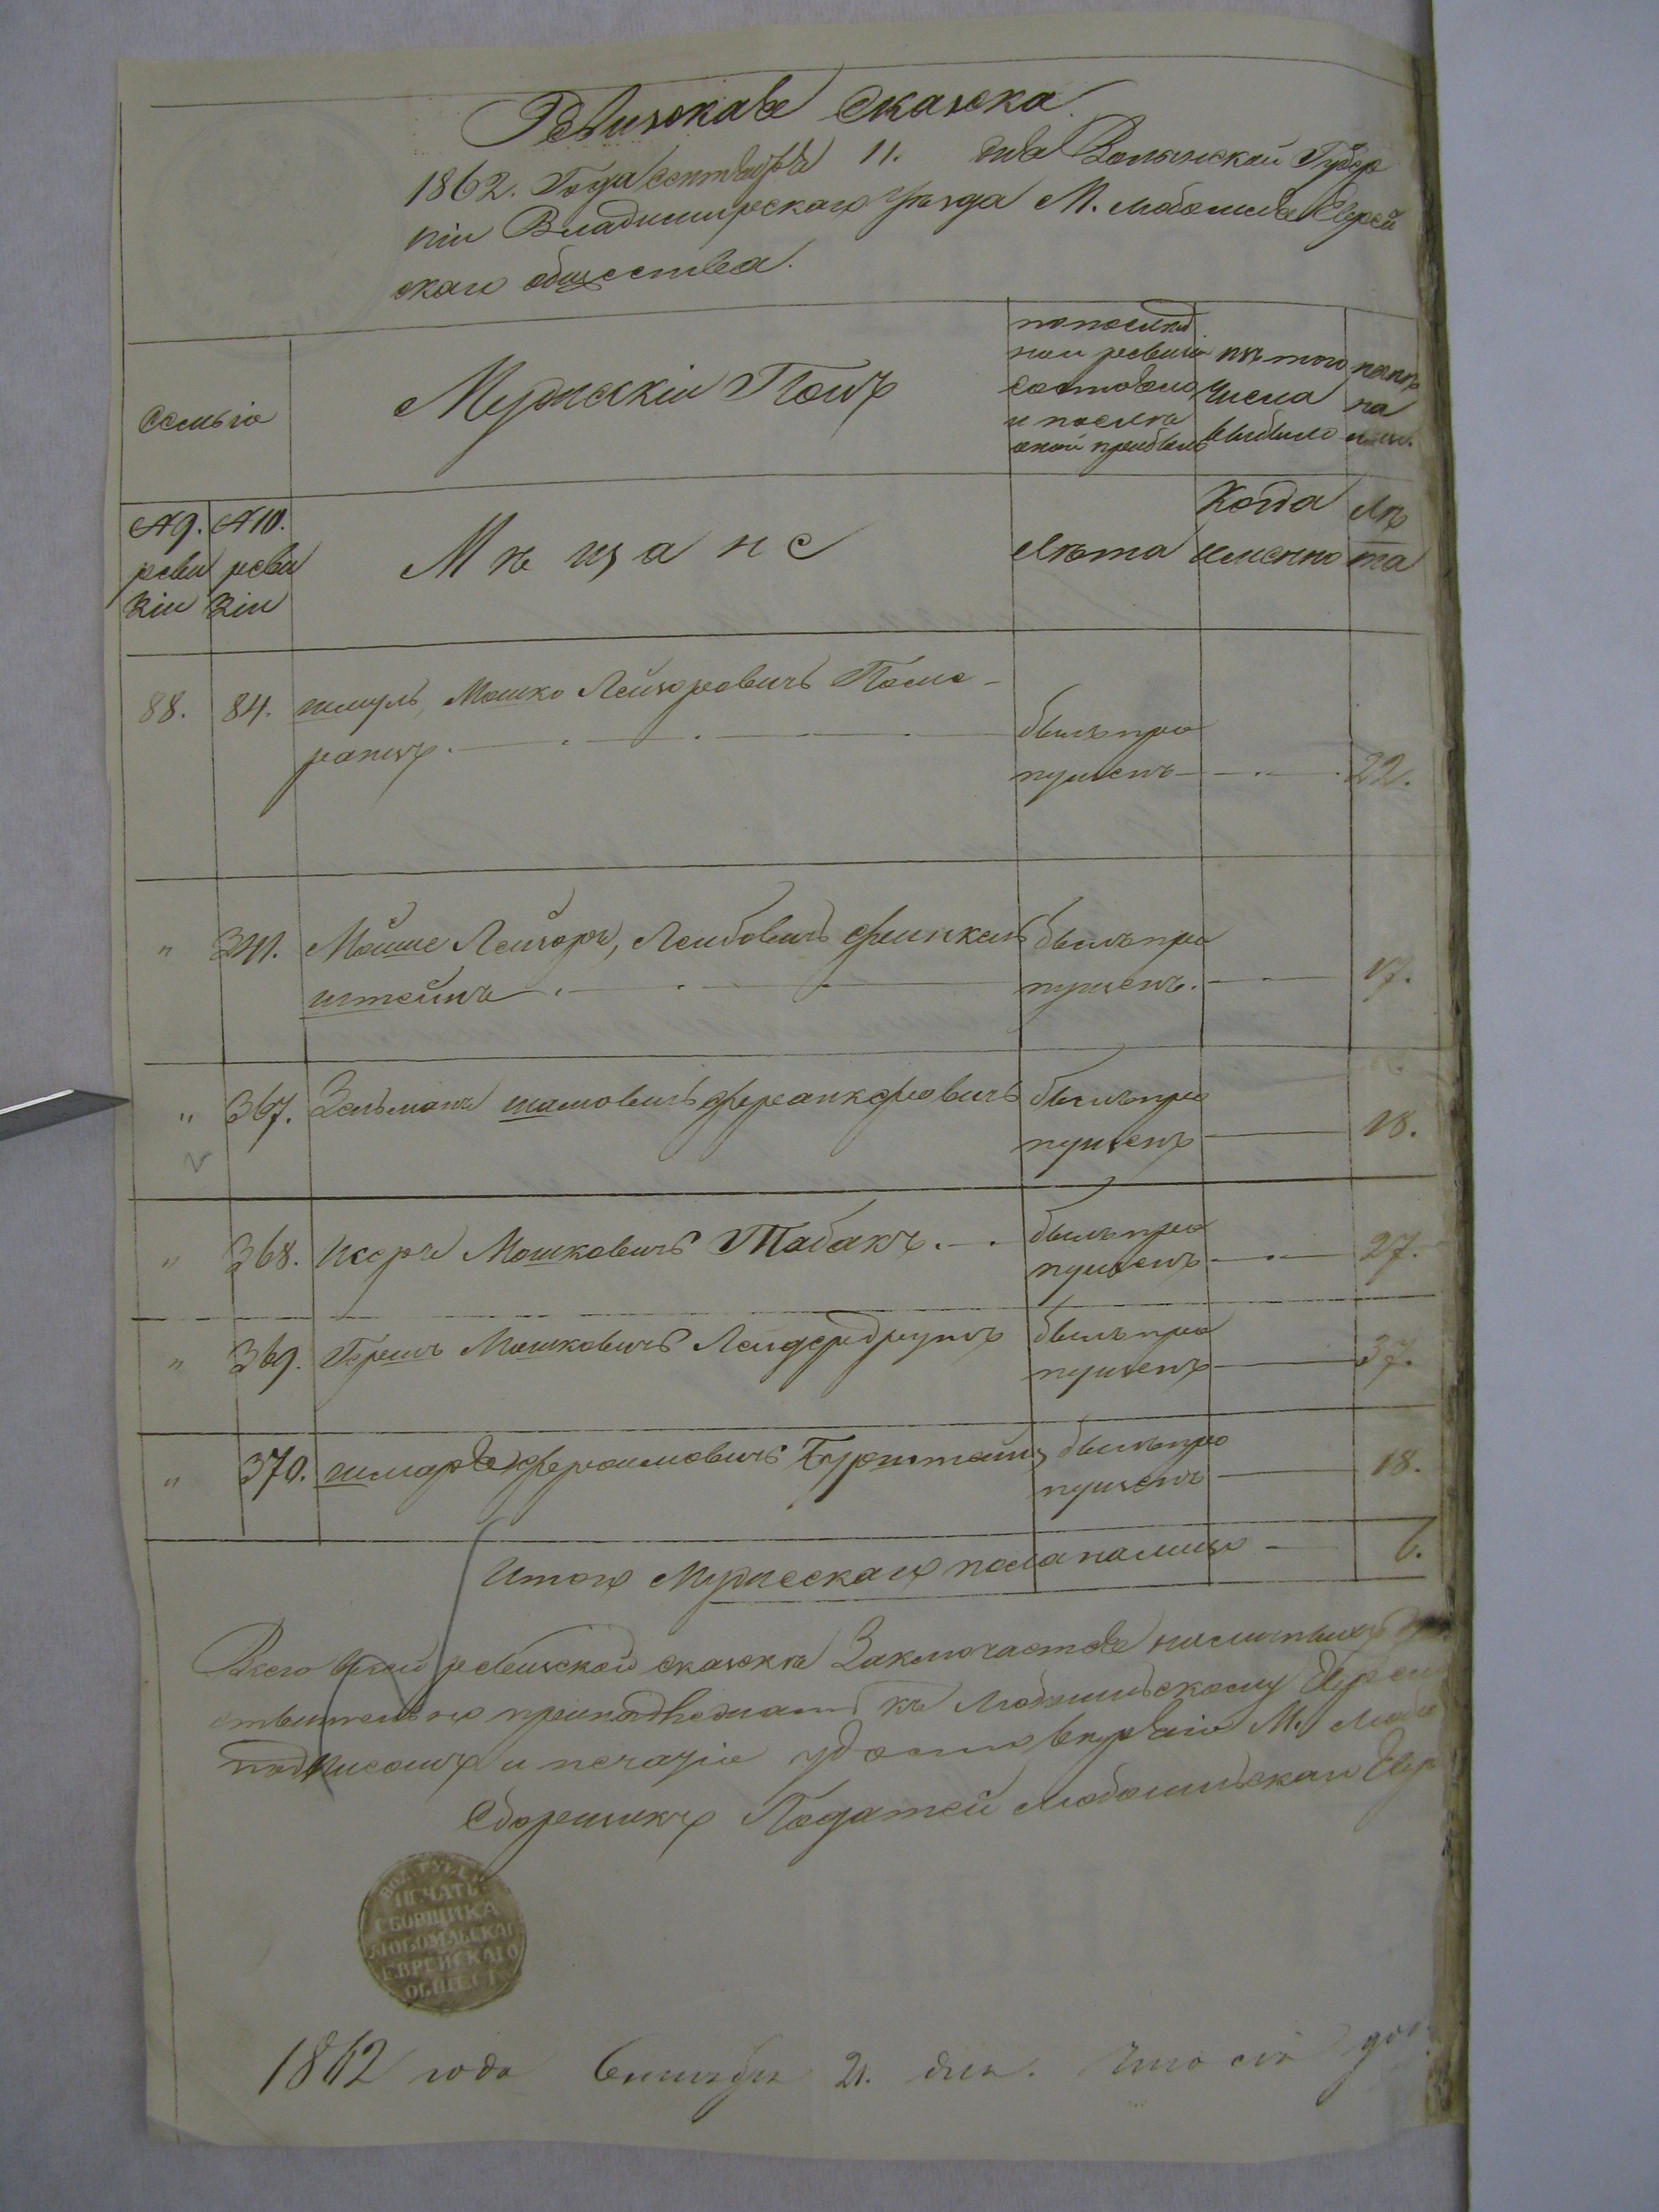 Ревизская Сказка.
1862. Года Сентября 11. дня Волынской Губер
ніи Владимирскаго Уѣзда М. Любомля Еврей
скаго общества.
Семьіо
Мужескій Полъ
попослѣд
ней ревизіи
состояло
и послѣ
оной прибыло
изъ того
числа
выбыло
нынѣ
на
лицо.
№ 9.
реви
зіи
№ 10.
реви
зіи
Мѣщане
Лѣта
Когда
именно
Лѣ
та
88. 84. шмуль, Мошко Лейзоровичъ Поме-
ранцъ. былъ про
пущенъ 22.
" 341. Мойше Лейзоръ, Лейбовичъ Финкель
штейнъ былъ про
пущенъ. 17.
" 367. Зельманъ шамовичъ былъ про
пущенъ 18.
" 368. Исеръ Мошковичъ Табакъ. былъ про
пущенъ 27.
" 369. Гершъ Мошковичъ былъ про
пущенъ 37.
" 370. шмарья Фроимовичъ былъ про
пущенъ 18.
Итого Мужескаго пола налицо 6.
Всего всей ревизской сказкѣ Заключается наличныхъ
ствительно къ Любомльскому Еврей
подписомъ и печатью М. Любо
Сборщикъ Податей Любомльскаго Евр
ВОЛ. ГУБЕР.
ПЕЧАТЬ
СБОРЩИКА
ЛЮБОМЛЬСКАГ
ЕВРЕЙСКАГО
ОБЩЕСТ
1862 года Сентября 21. дня. Что сія